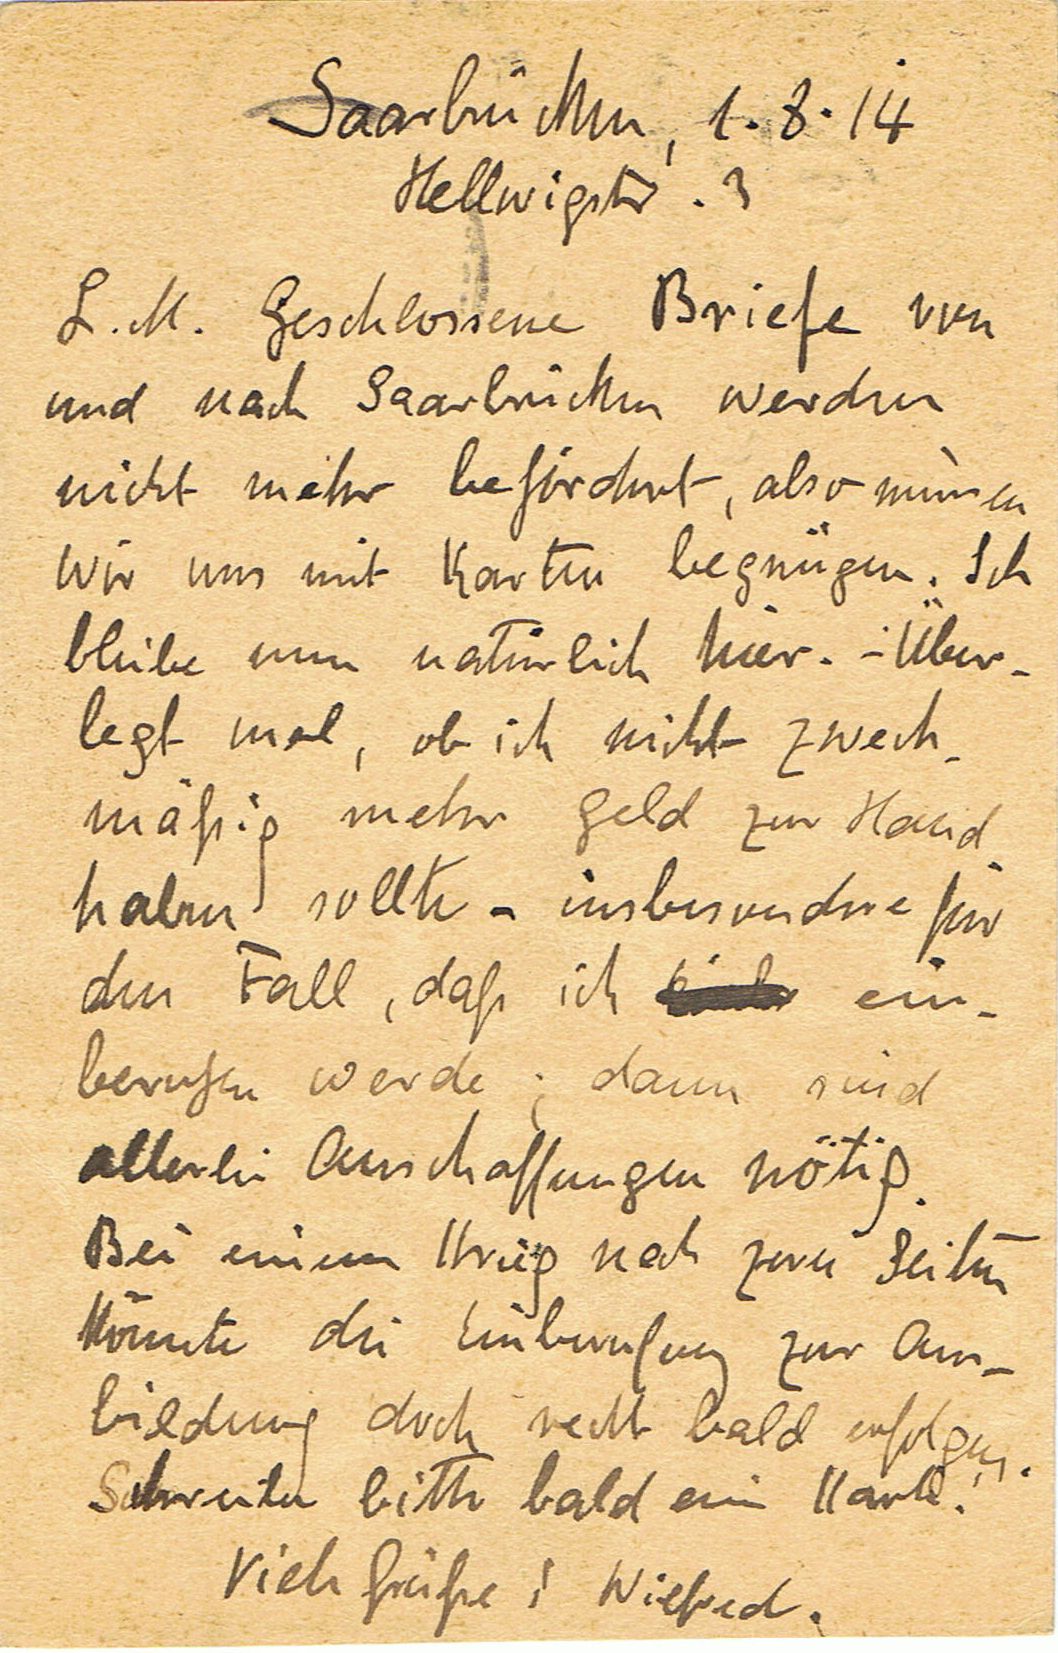 Saarbrücken, 1.8.14
Hellwigstr. 3
L.M. Geschlossene Briefe von
und nach Saarbrücken werden
nicht mehr befördert, also müssen
wir uns mit Karten begnügen. Ich
bleibe nun natürlich hier. - Über-
legt mal, ob ich nicht zweck-
mäßig mehr Geld zur Hand
haben sollte - insbesondere für
den Fall, daß ich ein-
berufen werde; dann sind
allerlei Anschaffungen nötig.
Bei einem Krieg nach zwei Seiten
könnte die Einberufung zur Aus-
bildung doch recht bald erfolgen.
Schreibt bitte bald eine Karte!
Viele Grüße! Wilfred.